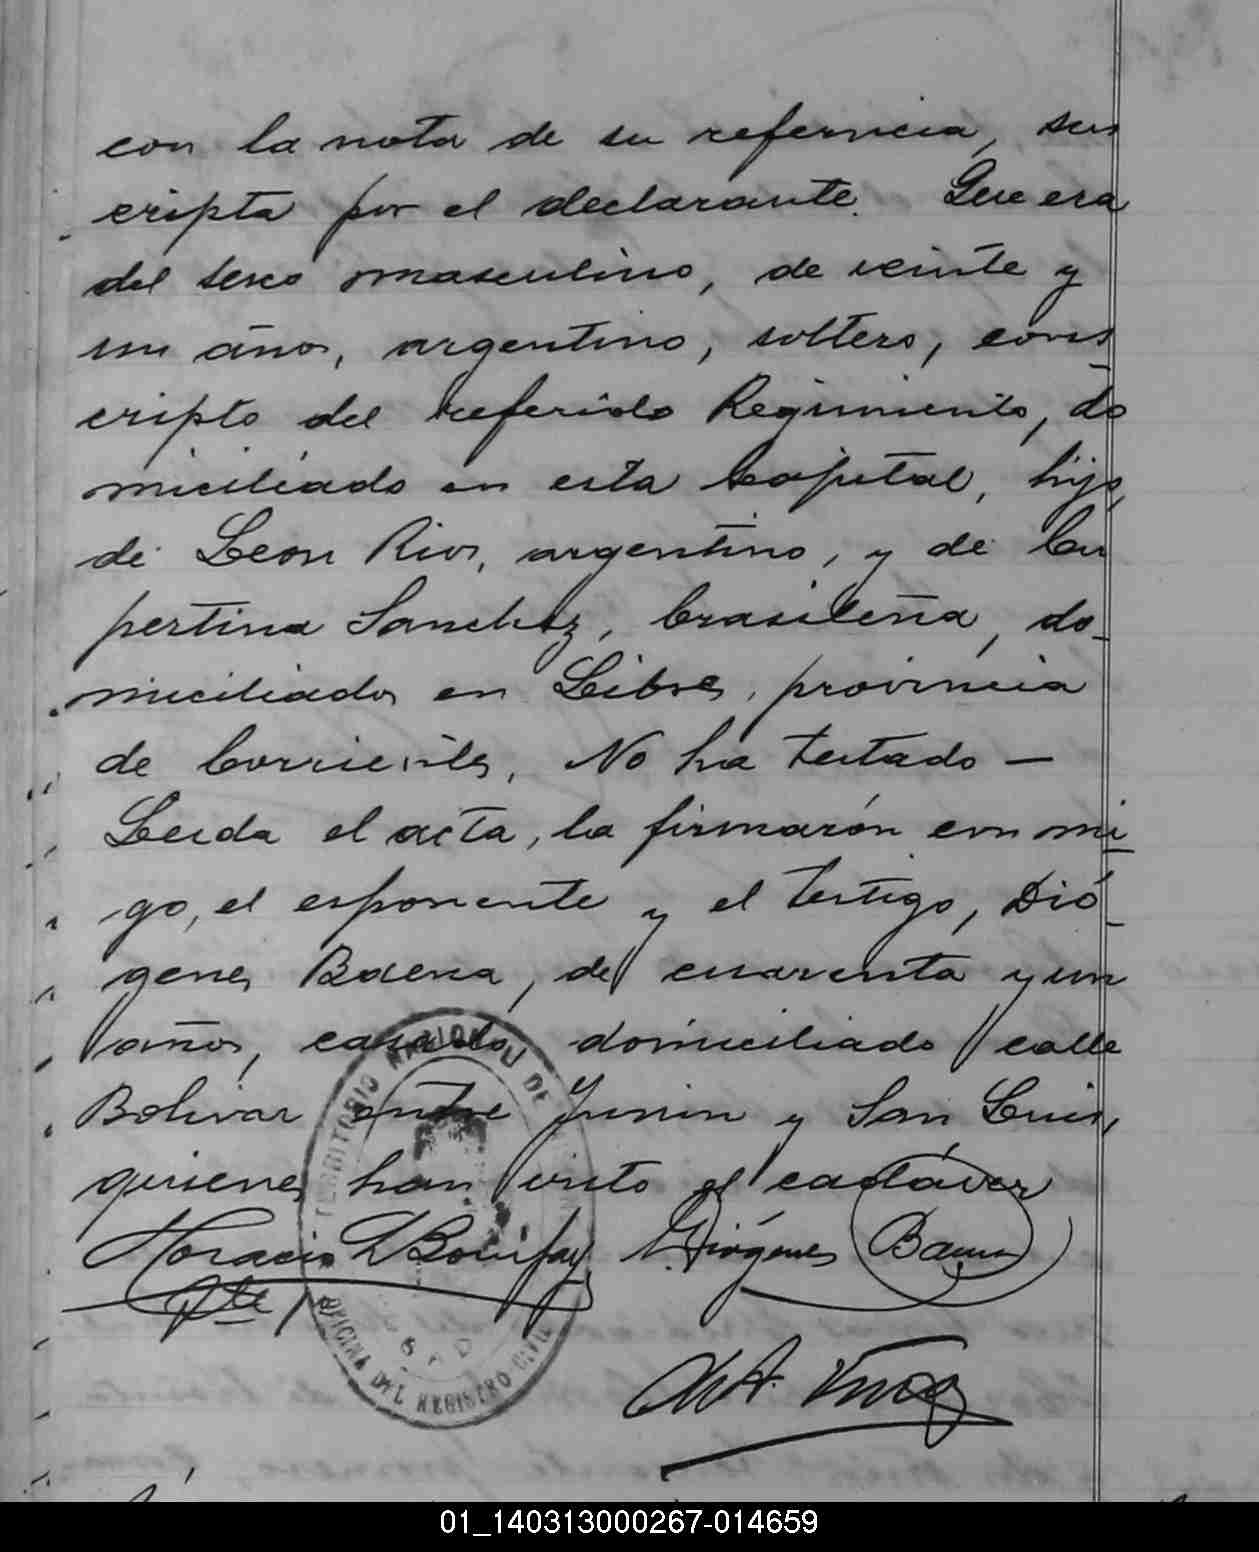 con la nota de su referencia, sus
cripta por el declarante. Que era
del sexo masculino, de veinte y
un años, argentino, soltero, cons
cripto del referido Regimiento, do
miciliado en esta Capital, hijo,
de Leon Rios, argentino, y de Cu
pertina Sanchez, brasileña, do-
miciliados en Libres, provincia
de Corrientes. No ha testado —
Leida el acta, la firmarón con mi
go, el esponente y el testigo, Dió-
genes Baena, de cuarenta y un
años, casado, domiciliado calle
Bolivar entre Junin y San Luis,
quienes han visto el cadáver
Horacio Diógenes Baena
Tte
TERRITORIO NACIONAL DE
OFICINA DEL REGISTRO CIVIL
01_140313000267-014659